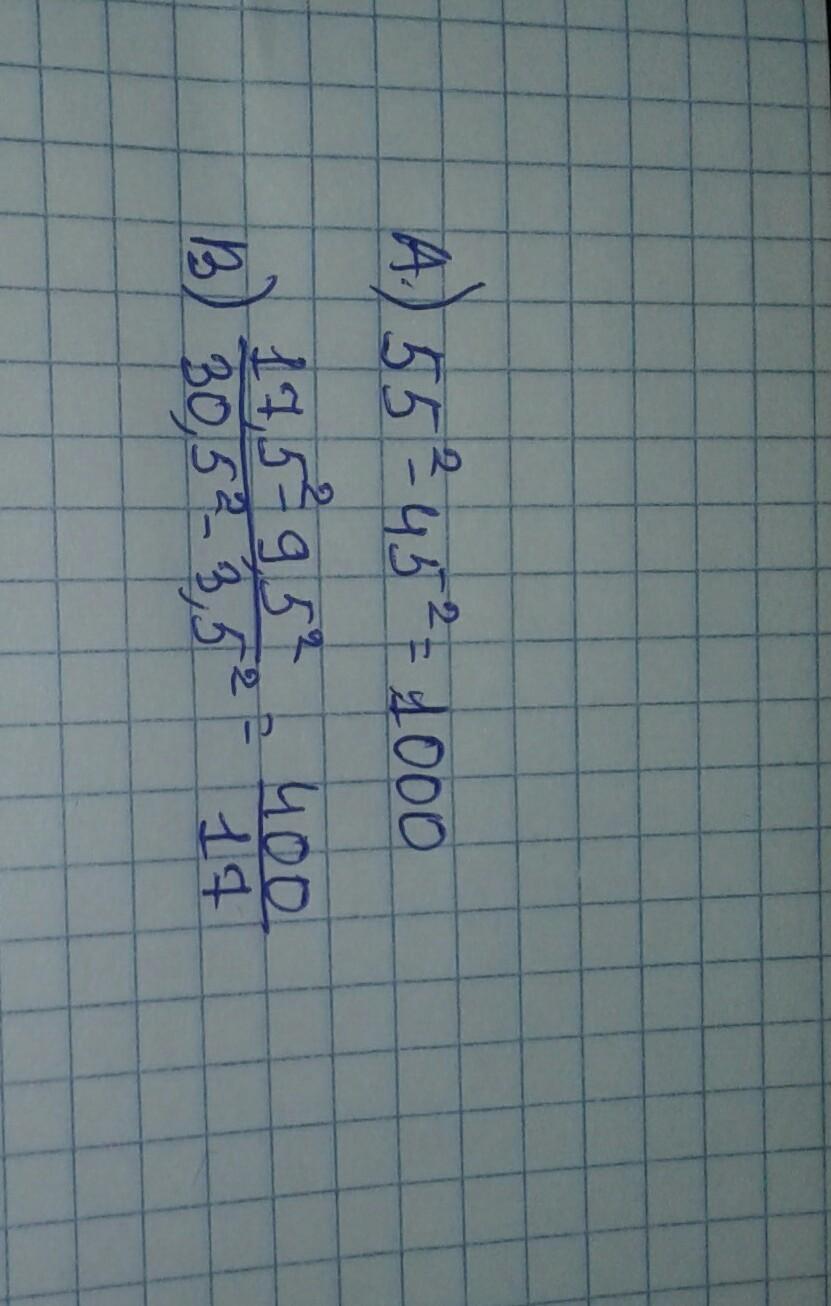 A.) 55² - 45² = 1000
B) 17,5² - 9,5² / 30,5² - 3,5² = 400 / 17